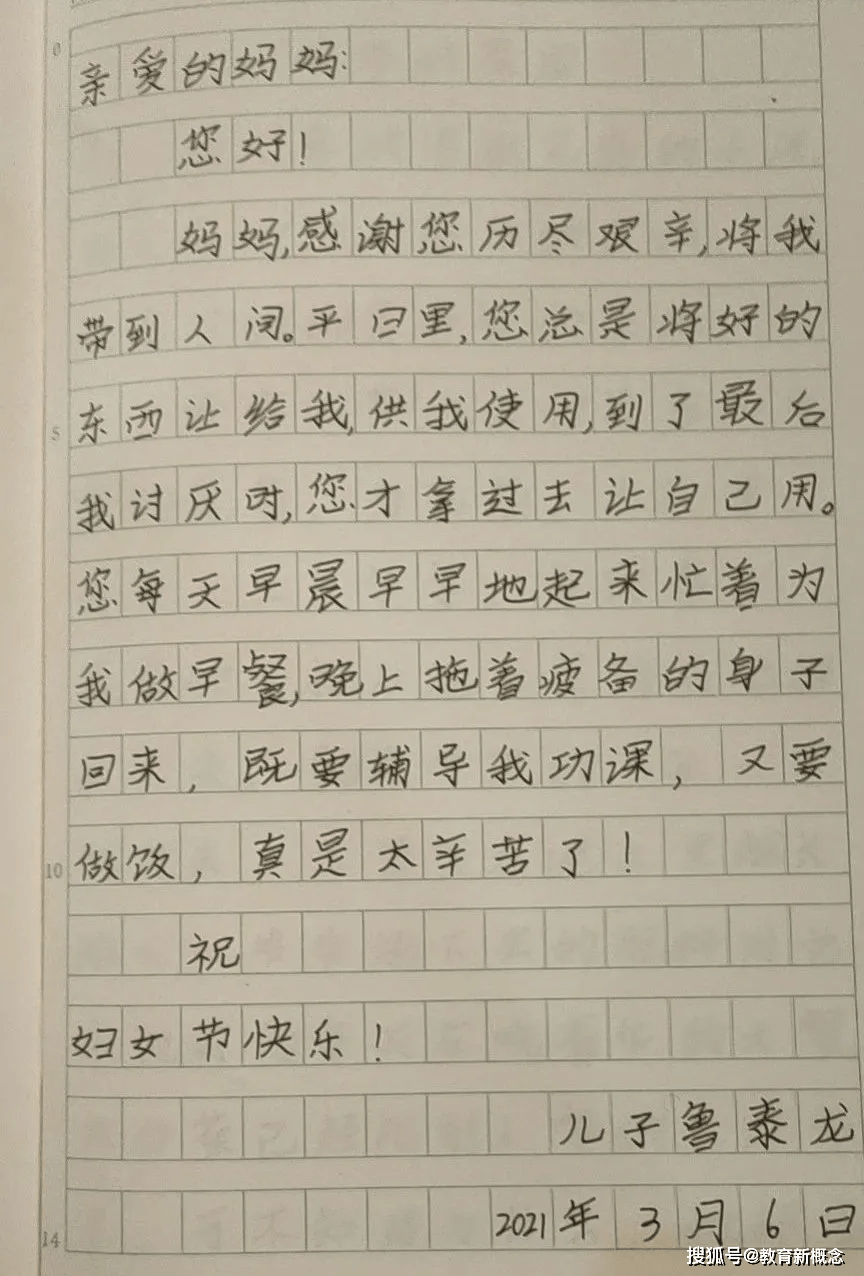 亲爱的妈妈:
您好!
妈妈,感谢您历尽艰辛,将我
带到人间。平日里,您总是将好的
东西让给我,供我使用,到了最后
我讨厌时,您才拿过去让自己用。
您每天早晨早早地起来忙着为
我做早餐,晚上拖着疲备的身子
回来,既要辅导我功课,又要
做饭,真是太辛苦了!
祝
妇女节快乐!
儿子鲁泰龙
2021年3月6日
0
5
10
14
搜狐号@教育新概念